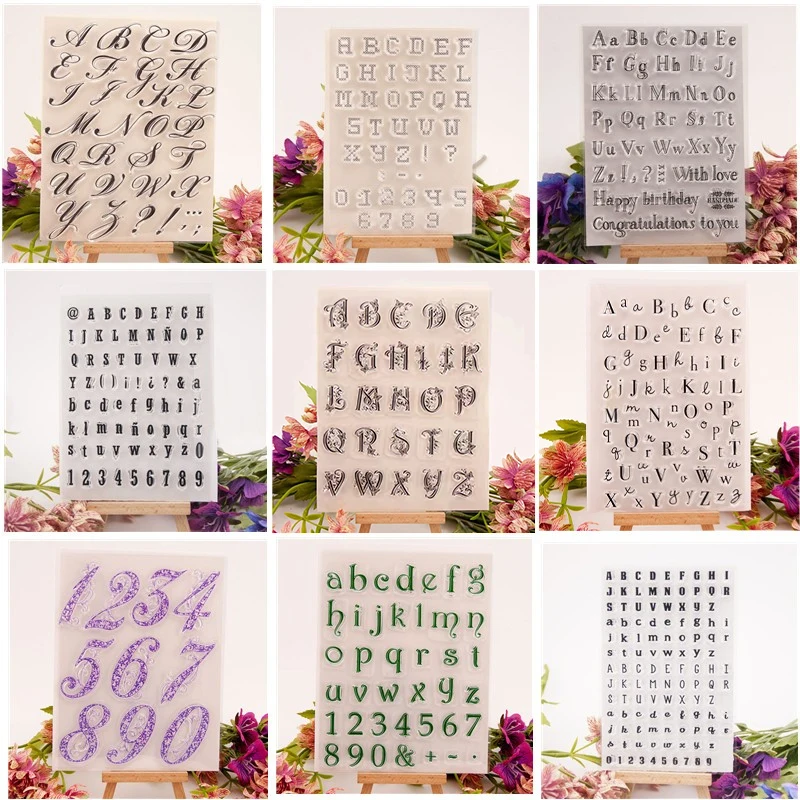 A B C D
E F G H
I J K L
M N O P
Q R S T
U V W X
Y Z ? ! , : ;
A B C D E F
G H I J K L
M N O P Q R
S T U V W
X Y Z ! ?
: - .
0 1 2 3 4 5
6 7 8 9
Aa Bb Cc Dd Ee
Ff Gg Hh Ii Jj
Kk Ll Mm Nn Oo
Pp Qq Rr Ss Tt
Uu Vv Ww Xx Yy
Zz ! , ? With love
Happy birthday HANDMADE
Congratulations to you
@ A B C D E F G H
I J K L M N Ñ O P
Q R S T U V W X
Y Z ( ) ¡ ! ¿ ? & a
b c d e f g h i j
k l m n ñ o p q r
s t u v w x y z 0
1 2 3 4 5 6 7 8 9
A B C D E
F G H I J K
L M N O P
Q R S T U
V W X Y Z
A a a B b b C c c
d d D e e E f f F
G g g H h h i I i
j j J k k K l l L
M m m N n n O o o P p
q q Q r r R s s S t T
t U u u V v v W w w
X x x Y y y Z z z
1 2 3 4
5 6 7
8 9 0
a b c d e f g
h i j k l m n
o p q r s t
u v w x y z
1 2 3 4 5 6 7
8 9 0 & + - .
A B C D E F G H I
J K L M N O P Q R
S T U V W X Y Z
a b c d e f g h i
j k l m n o p q r
s t u v w x y z
A B C D E F G H I
J K L M N O P Q R
S T U V W X Y Z
a b c d e f g h i
j k l m n o p q r
s t u v w x y z
0 1 2 3 4 5 6 7 8 9